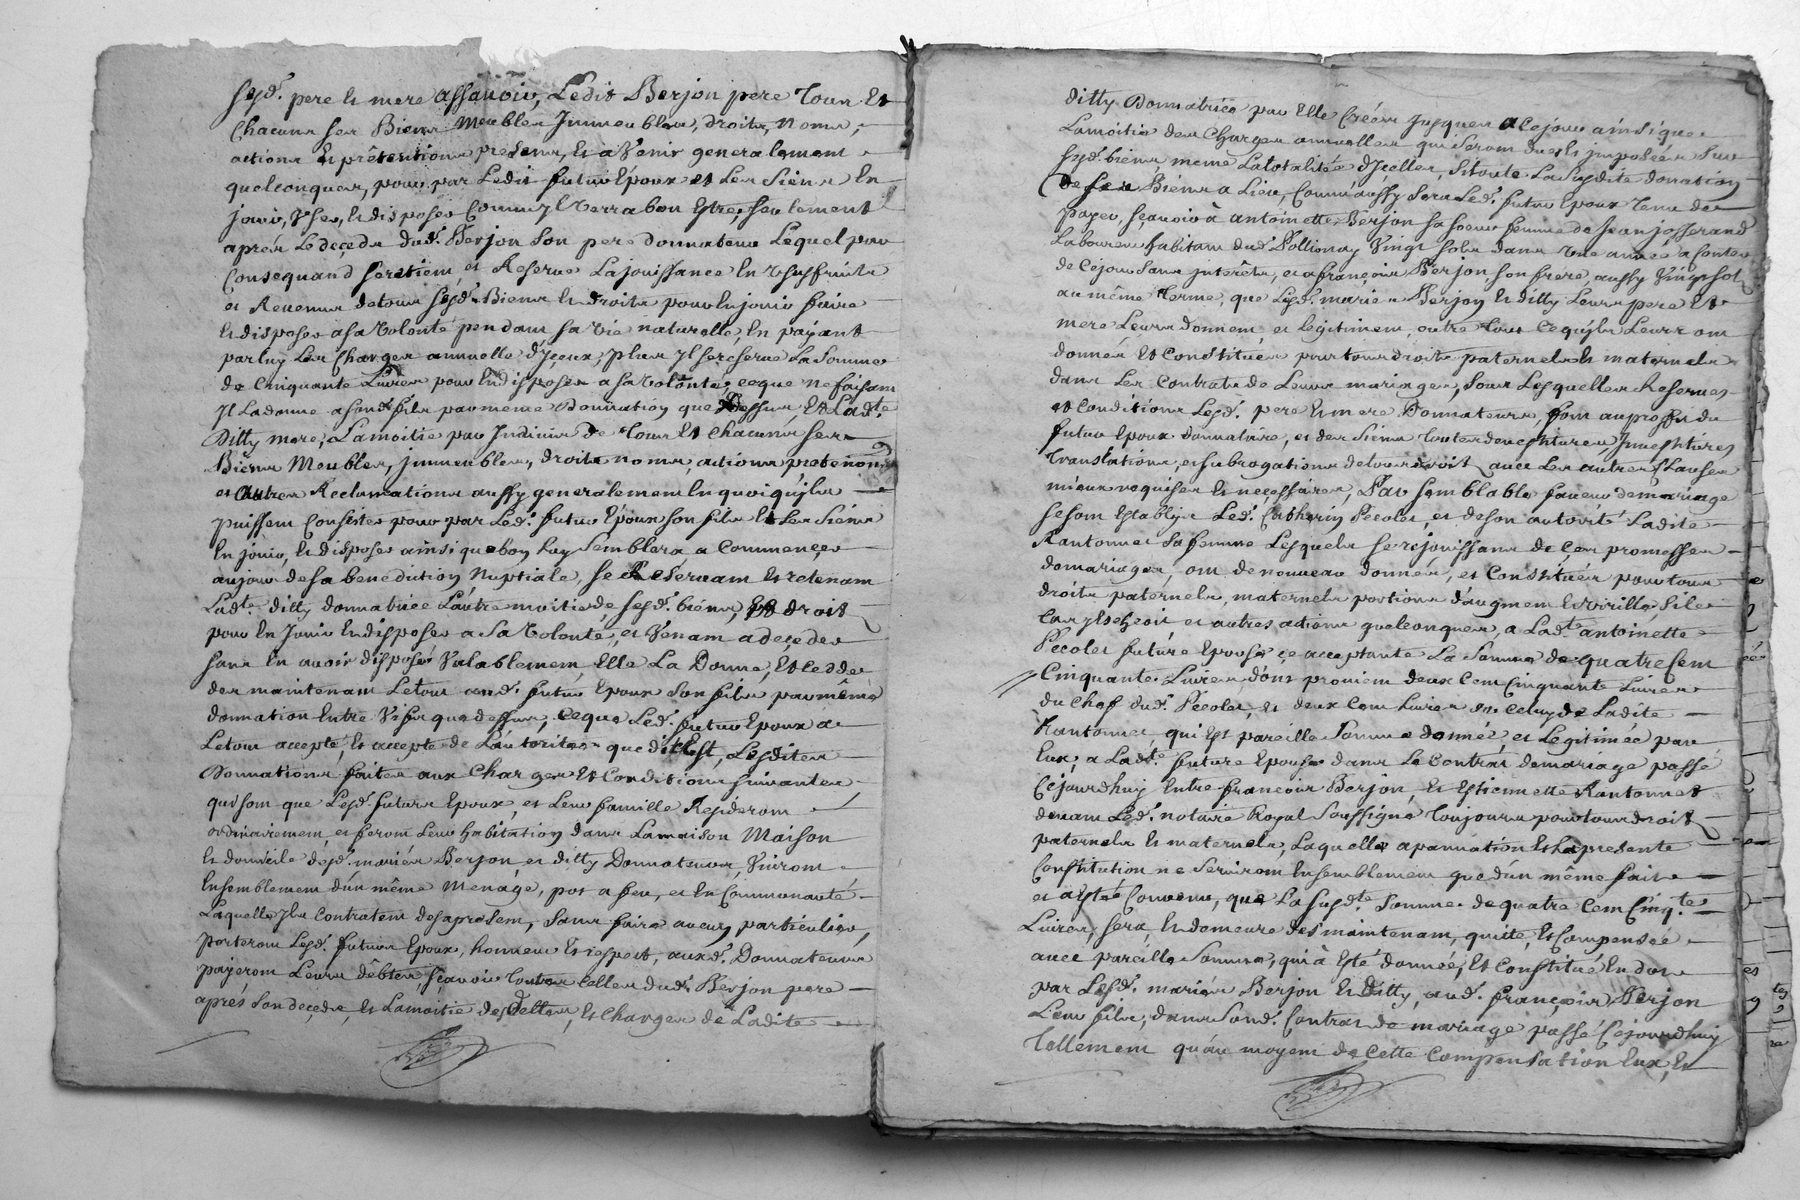 sesd. pere et mere assavoir, Ledit Berjon pere Tous Et
Chacuns ses Biens Meubles Jmmeubles, droits, Noms,
actions Et prétentions presens, Et a Venir generalement
quelconques, pour par Ledit futur Epoux et Les Siens En
jouir, User, Et disposer Comm'jl verra bon Estre, seulement
aprés Le deçeds dud. Berjon Son pere donnateur Lequel par
Consequand se retient et Reserve La jouissance En Usufruits
et Revenus de tous sesd. Biens Et droits pour En jouir faire
Et disposer a sa volonté pendant sa vie naturelle, En payant
par luy Les Charges annuelle d'Jçeux, plus Jl se reserve La Somme
de Cinquante Livres pour En disposer a sa volonté, ce que ne faisant
Jl La donne a sond. fils par même Donnation que Dessus Et Ladte
Ditty mere, La moitie par Jndivis De Tous Et Chacuns ses
Biens Meubles, jmmeubles, droits noms, actions pretentions
et Autres Reclamations aussy generalement En quoi qu'jls
puissent Consister pour par Led. futur Epoux son fils Et Les Siens
En joüir, Et disposer ainsi que bon Luy Semblera a Commencer
aujour de sa benediction Nuptiale, se Reservant Et retenant
Ladte ditty donnatrice L'autre moitié de sesd. biens, Et droits
pour En Jouir En disposer a Sa Volonté, et Venant a deçeder
sans En avoir disposé Valablement, Elle La Donne, Et cede
des maintenant Le tout aud. futur Epoux Son fils par même
donnation Entre Vifs que dessus, ce que Led. futur Epoux a
Le tout accepté, Et accepte de L'autorité que dit Est, Lesdites
Donnations faites aux Charges Et Conditions suivantes
qui sont que Lesd. futurs Epoux, et Leur famille Resideront
ordinairement, et feront Leur habitation dans La maison Maison
Et domicile desd. mariés Berjon, et ditty Donnateurs, Vivront
Ensemblement d'un même Menage, pot a feu, et En Communauté
Laquelle Jls Contractent des a present, Sans faire aucun particulier,
porteront Lesd. futurs Epoux, honneur Et respect, auxd. Donnateurs
payeront Leurs dêbtes, sçavoir toutes Celles dud. Berjon pere
aprés Son deçeds, Et La moitie des Dettes, Et Charges de Ladite
ditty Donnatrice par Elle Créés jusques a Cejour ainsi que
La moitie des Charges annuelles qui Seront dues Et jmposées Sur
sesd. biens même La totalitée d'Jcelles, Si toute La Susdite donation
de ses Biens a Lieu, Comm'aussy Sera Led. futur Epoux Tenu de
payer, sçavoir à antoinette Berjon sa soeur femme de Jean josserand
Laboureur habitant dud. Pollionay Vingt Sols dans une année a Conter
de Cejour Sans jnterêts, et a françois Berjon son frere aussy Vingt sols
au même Terme, que Lesd. mariés Berjon Et ditty Leurs pere Et
mere Leurs donnent et legitiment, outre Tout Ce qu'jls Leurs ont
donnés Et Constitués pour tous droits paternels Et maternels
dans Les Contrats de Leurs mariages, Sous Lesquelles Reserves
et Conditions Lesd. pere Et mere Donnateurs, font au profit du
futur Epoux donnataire, et des Siens Toutes devestitures, jnvestitures
Translations, et subrogations de tous droits avec Les autres Clauses
mieux requises Et neçessaires, Par Semblable faveur de mariage
se sont Etablys Led. Catherin Pecolet, et de son autorité Ladite
Rantonnet Sa femme Lesquels se rejouissans de Ces promesses
de mariage, ont de nouveau donnés, et Constitués pour tous
droits paternels, maternels portions d'augment Et Virille, Si le
Cas y Escheoit et autres actions quelconques, a Ladte antoinette
Pecolet future Epouse ce acceptante La Somme de quatre Cent
Cinquante Livres dont provient deux Cent Cinquante Livres
du Chef dud. Pécolet, et deux Cent Livres de Celuy de Ladite
Rantonnet qui Est pareille Somme donnée, et Legitimée par
Eux, a Ladte future Epouse dans Le Contrat de mariage passé
Cejourdhuy Entre françois Berjon, Et Estiennette Rantonnet
devant Led. notaire Royal Soussigné Toujours pour tous droits
paternels Et maternels, Laquelle apannation Et La presente
Constitution ne Serviront Ensemblement que d'un même fait
et a Esté Convenu, que La susdte Somme de quatre Cent Cinqte
Livres, sera, Et demeure des maintenant, quitte, Et Compensée
avec pareille Somme, qui à Esté donnée, Et Constitué En dot
par Lesd. mariés Berjon Et Ditty, aud. françois Berjon
Leur fils, dans Sond. Contrat de mariage passé Cejourdhuy
Tellement qu'au moyen de Cette Compensation Eux, Et